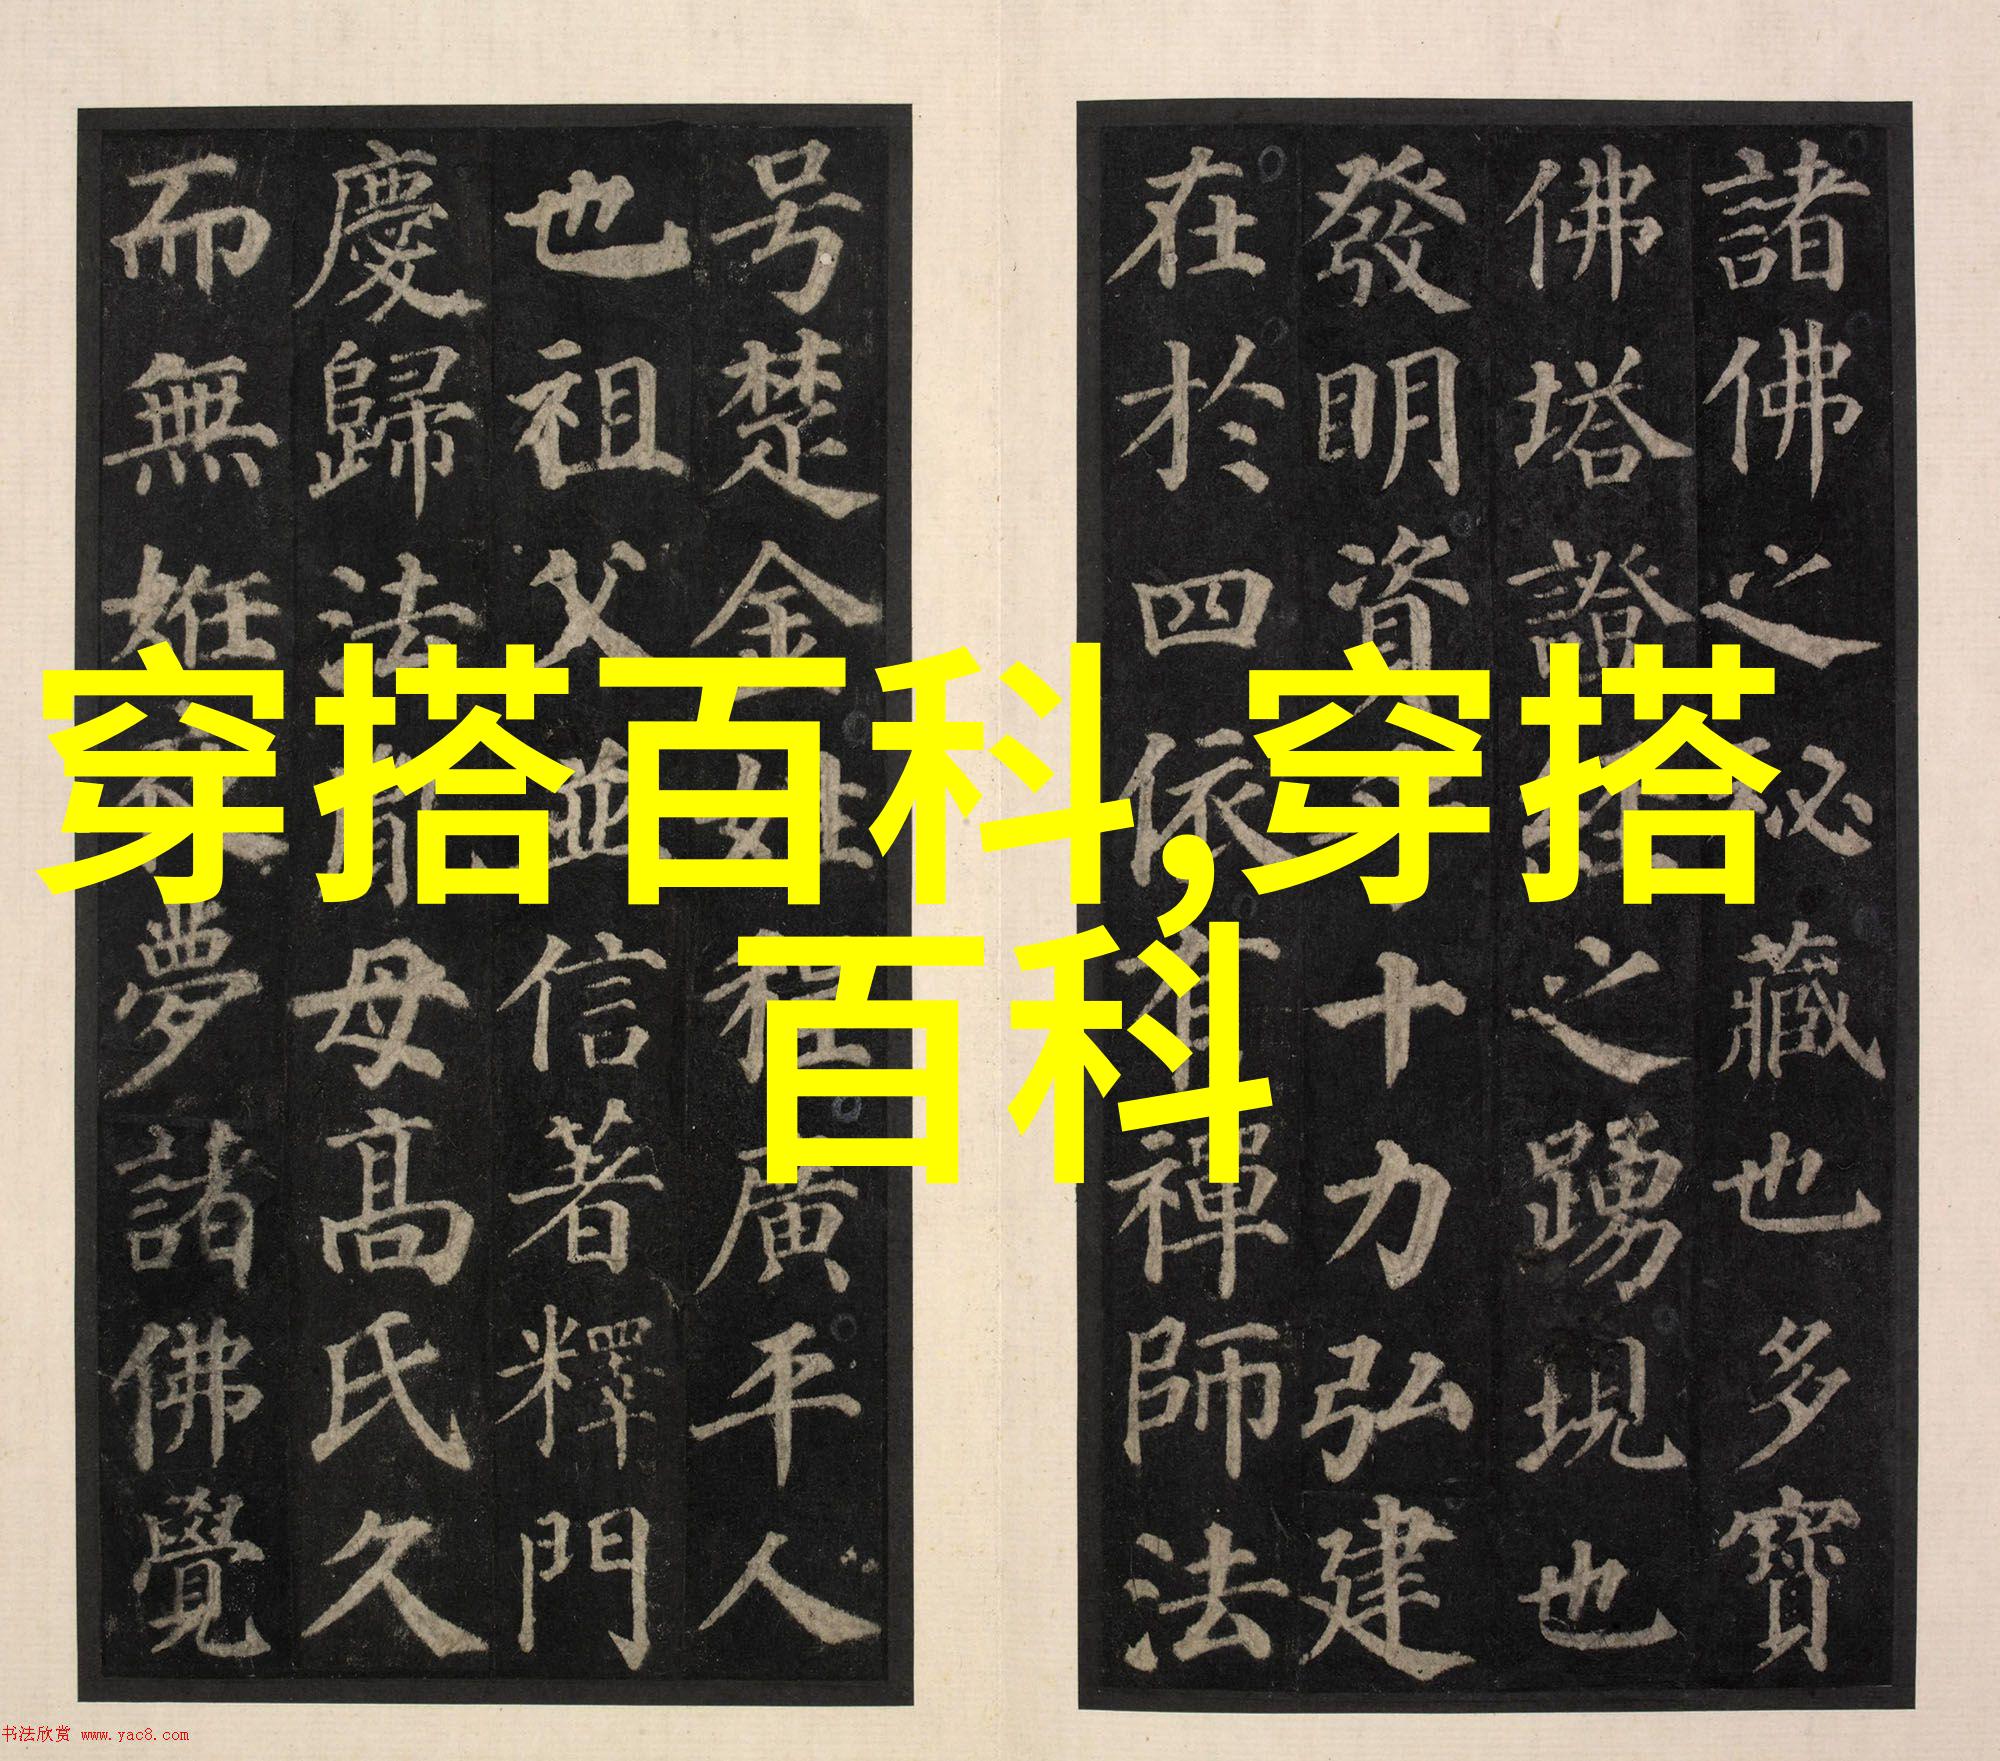 穿搭百科,穿搭
百科
諸佛之祕藏也多寶
佛塔證之踴現也
發明資十力弘建
在於四依有禪師法
号楚金姓程廣平人
也祖父並信著釋門
慶歸法母高氏久
而無姙夜夢諸佛覺
书法欣赏 www.yac8.com